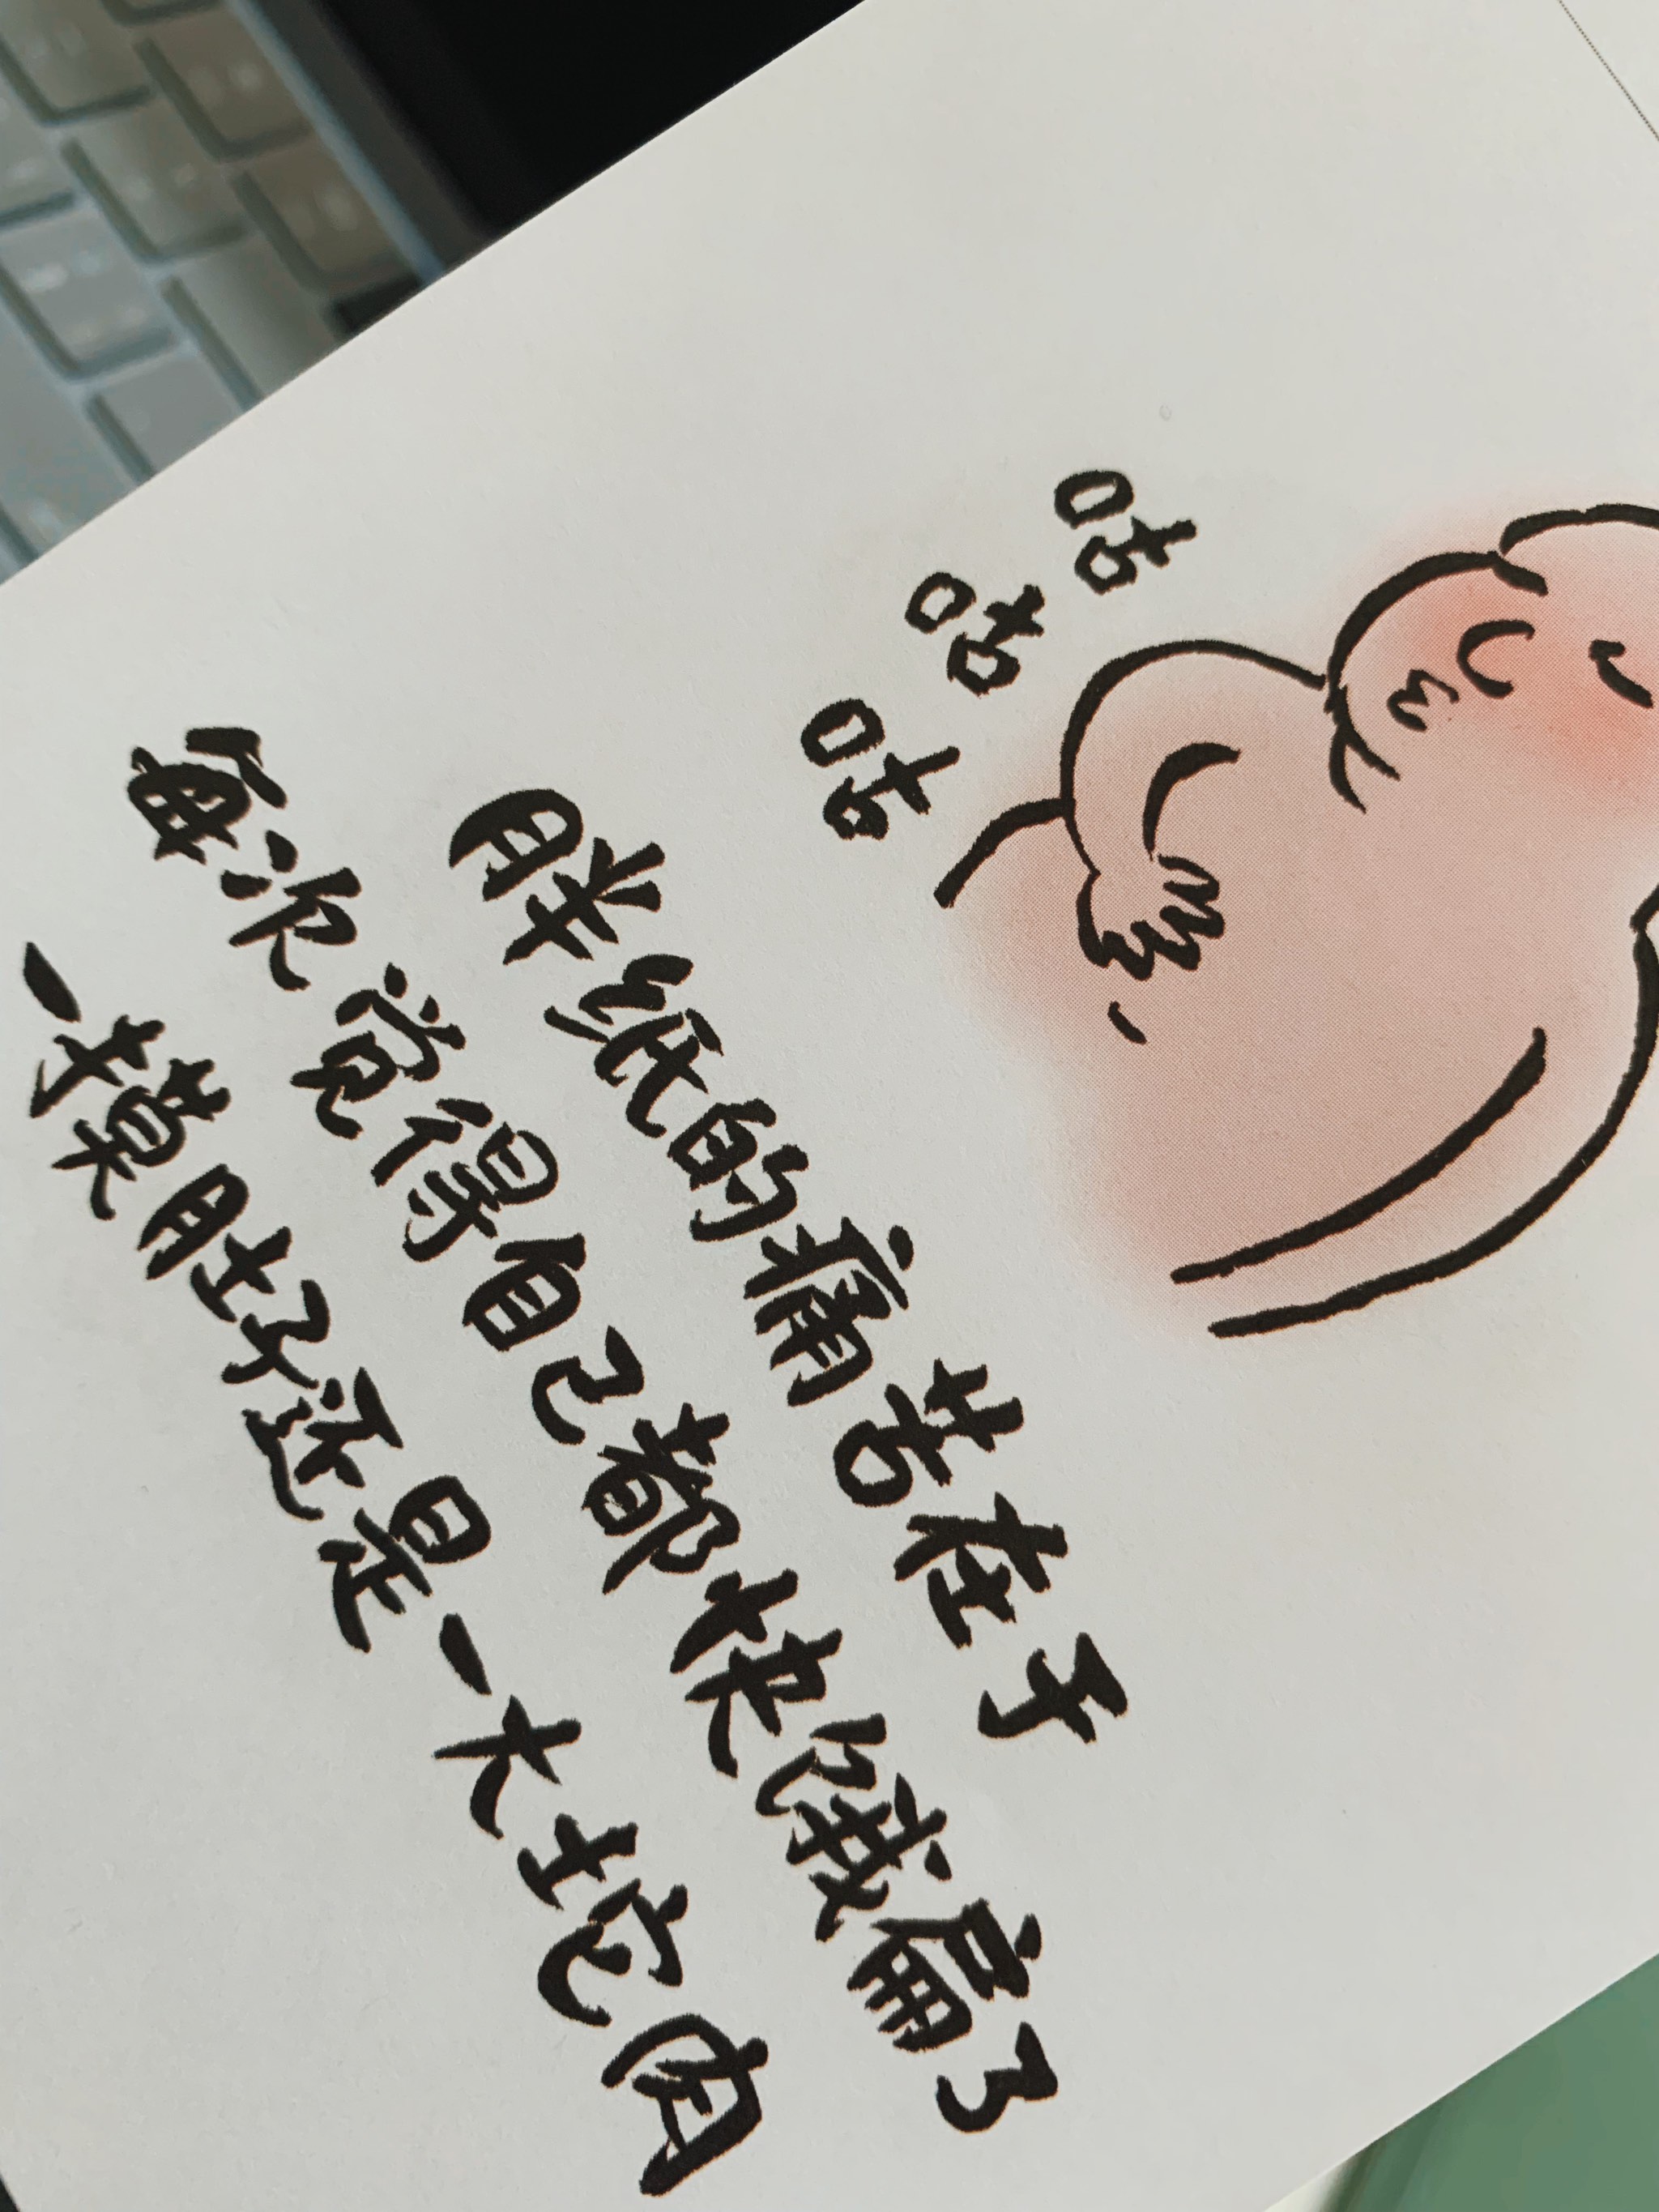 咕
咕
咕
胖纸的痛苦在于
每次觉得自己都快饿扁了
一摸肚子还是一大坨肉